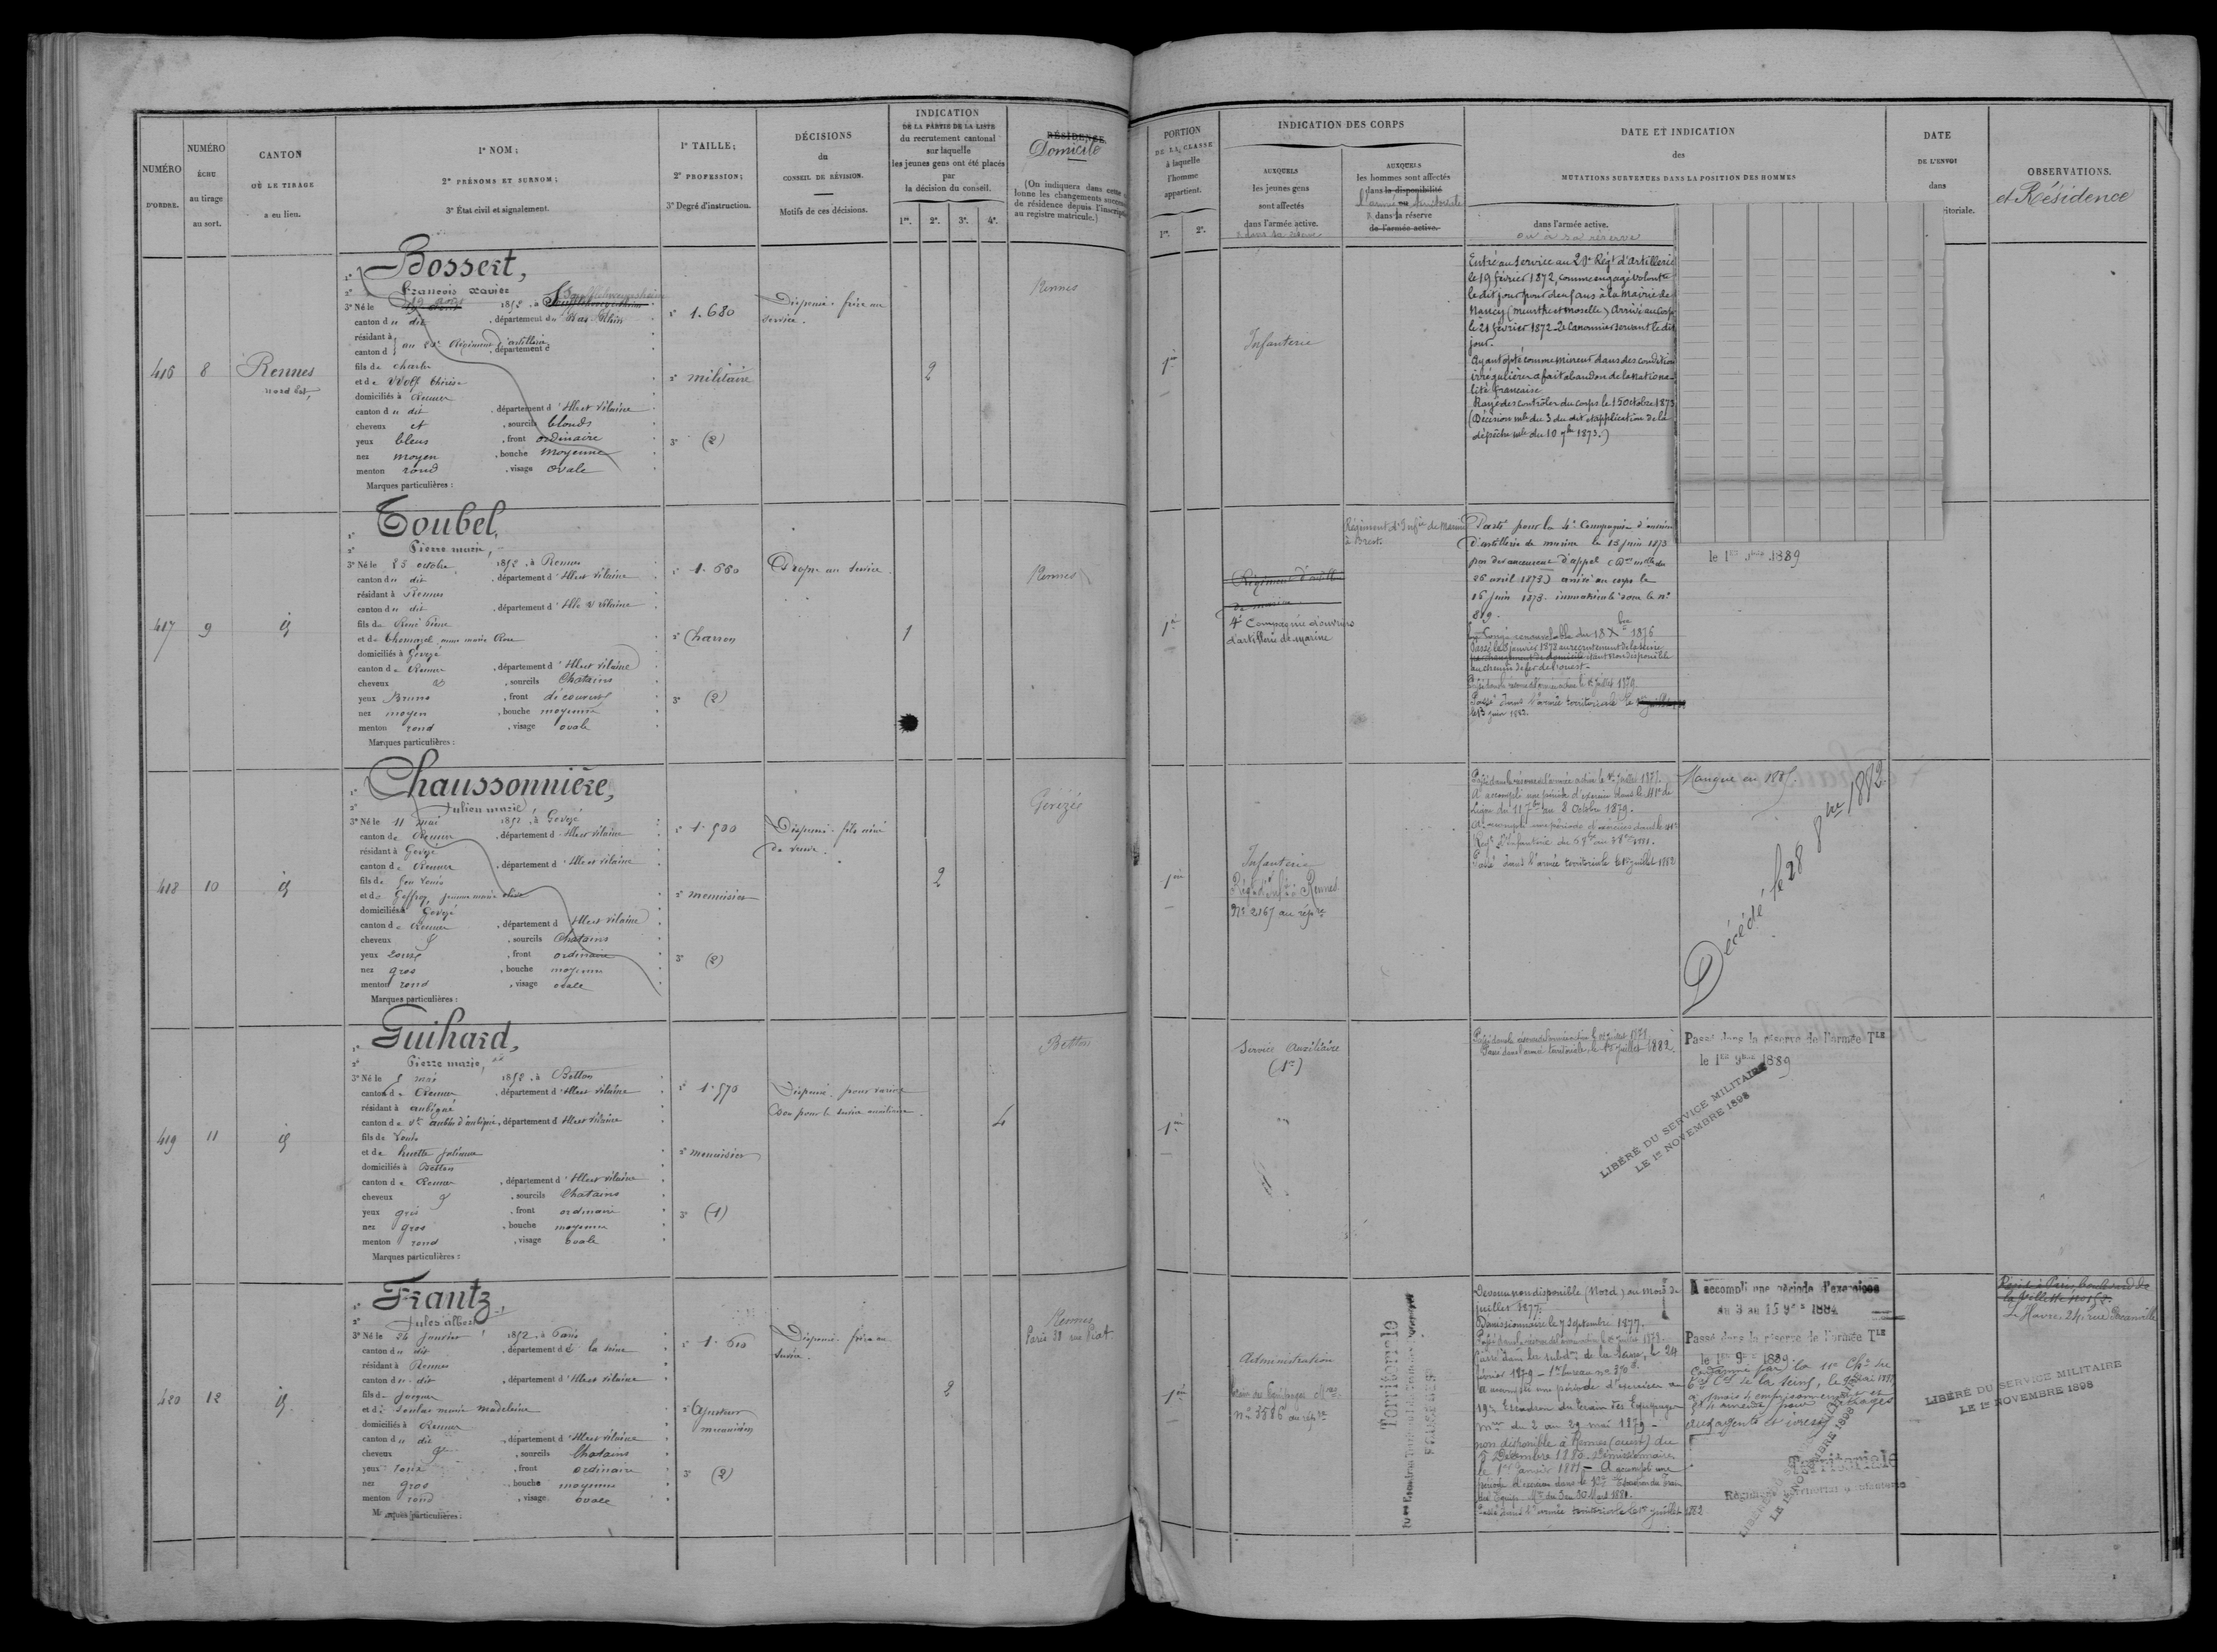 NUMÉRO
D'ORDRE.
NUMÉRO
ÉCHU
au tirage
au sort.
CANTON
OÙ LE TIRAGE
a eu lieu.
1° NOM ;
2° PRÉNOMS ET SURNOM ;
3° État civil et signalement.
1° TAILLE ;
2° PROFESSION ;
3° Degré d'instruction.
DÉCISIONS
du
CONSEIL DE RÉVISION.
Motifs de ces décisions.
INDICATION
DE LA PARTIE DE LA LISTE
du recrutement cantonal
sur laquelle
les jeunes gens ont été placés
par
la décision du conseil.
1re. 2e. 3e. 4e.
RÉSIDENCE
Domicile
(On indiquera dans cette
lonne les changements
de résidence depuis
au registre matricule.)
416
8
Rennes
nord Est,
1° Bossert,
2° François Xavier
3° Né le 1852, à
canton du dit, département du Bas Rhin
résidant à
canton d au Régiment d'artillerie, département d
fils de Charles
et de Wolf thérèse
domiciliés à Rennes
canton du dit, département d'Ille et Vilaine
cheveux et, sourcils blonds
yeux bleus, front ordinaire
nez moyen, bouche moyenne
menton rond, visage ovale
Marques particulières :
1° 1.680
2° militaire
3° (2)
Dispensé. frère au
service.
2
Rennes
417
9
id
1° Toubel,
2° Pierre marie,
3° Né le 25 octobre 1852, à Rennes
canton du dit, département d'Ille et Vilaine
résidant à Rennes
canton du dit, département d'Ille et Vilaine
fils de René Pierre
et de Thomazel anne marie Rose
domiciliés à Gévezé
canton de Rennes, département d'Ille et Vilaine
cheveux et, sourcils Chatains
yeux Bruns, front découvert
nez moyen, bouche moyenne
menton rond, visage ovale
Marques particulières :
1° 1.660
2° Charron
3° (2)
Propre au service
1
Rennes
418
10
id
1° Chaussonnière,
2° Julien marie
3° Né le 11 mai 1852, à Gévezé
canton de Rennes, département d'Ille et Vilaine
résidant à Gévezé
canton de Rennes, département d'Ille et Vilaine
fils de feu Louis
et de Geffroy, jeanne marie olive
domiciliés à Gévezé
canton de Rennes, département d'Ille et Vilaine
cheveux et, sourcils Chatains
yeux roux, front ordinaire
nez gros, bouche moyenne
menton rond, visage ovale
Marques particulières :
1° 1.500
2° menuisier
3° (2)
Dispensé. fils aîné
de veuve.
2
Gévezé
419
11
id
1° Guihard,
2° Pierre marie,
3° Né le 5 mai 1852, à Betton
canton de Rennes, département d'Ille et Vilaine
résidant à aubigné
canton de St aubin d'aubigné, département d'Ille et Vilaine
fils de Louis
et de huette julienne
domiciliés à Betton
canton de Rennes, département d'Ille et Vilaine
cheveux et, sourcils Chatains
yeux gris, front ordinaire
nez gros, bouche moyenne
menton rond, visage ovale
Marques particulières :
1° 1.570
2° menuisier
3° (1)
Dispensé. pour varices
Bon pour le service auxiliaire.
4
Betton
420
12
id
1° Frantz,
2° Jules albert
3° Né le 24 janvier 1852, à Paris
canton du dit, département de la seine
résidant à Rennes
canton du dit, département d'Ille et Vilaine
fils de Jacques
et de marie madeleine
domiciliés à Rennes
canton du dit, département d'Ille et Vilaine
cheveux et, sourcils Chatains
yeux roux, front ordinaire
nez gros, bouche moyenne
menton rond, visage ovale
Marques particulières :
1° 1.610
2° Ajusteur
mécanicien
3° (2)
Dispensé. frère au
service.
2
Rennes
Paris 31 rue Piat.
PORTION
DE LA CLASSE
à laquelle
l'homme
appartient.
1re. 2e.
INDICATION DES CORPS
AUXQUELS
les jeunes gens
sont affectés
dans l'armée active.
AUXQUELS
les hommes sont affectés
dans la disponibilité
l'armée territoriale
dans la réserve
de l'armée active.
DATE ET INDICATION
des
MUTATIONS SURVENUES DANS LA POSITION DES HOMMES
dans l'armée active.
ou à sa réserve
DATE
DE L'ENVOI
dans
ritoriale.
OBSERVATIONS.
et Résidence
1re
Infanterie
Entré au service au Régt d'artillerie
le 19 février 1872, comme engagé volontre
le dit jour pour deux ans à la Mairie de
Nancy (Meurthe et Moselle) Arrivé au Corps
le 21 février 1872 2e Canonnier servant le dit
jour.
Ayant opté comme mineur dans des conditions
irrégulières a fait abandon de la nationa-
lité française
Rayé des contrôles du corps le 15 octobre 1873
(Décision mlle du 3 du dit et application de la
dépêche mlle du 10 7bre 1873.)
1re
Régiment d'artill
de marine
4e Compagnie d'ouvriers
d'artillerie de marine
Régiment d'Infie de Marine
à Brest.
Parti pour la 4e Compagnie d'ouvriers
d'artillerie de marine le 15 juin 1873
par devancement d'appel
26 avril 1873) arrivé au corps le
16 juin 1873. immatriculé sous le no
819.
En Congé renouvelable du 18 Xbre 1876
Passé le 8 janvier 1878 au recrutement de la Seine
par changement de domicile étant non disponible
au chemin de fer de l'ouest.
Passé dans la réserve de l'armée active le 1er juillet 1879
Passé dans l'armée territoriale le
le 13 juin 1882.
le 1er 9bre 1889
1re
Infanterie
Régt d'Infie à Rennes
No 2167 au répre
Passé dans la réserve de l'armée active le 1er juillet 1877.
A accompli une période d'exercices dans le 41e de
Ligne du 11 7bre au 8 octobre 1879.
A accompli une période d'exercices dans le 41e
Regt d'Infanterie
Passé dans l'armée territoriale le 1er juillet 1882
Manque en 1885.
Décédé le 28 8bre 1882
1re
Service Auxiliaire
(1re)
Passé dans la réserve de l'armée active le 1er juillet 1877
Passé dans l'armée territoriale le 1er juillet 1882.
Passé dans la réserve de l'armée Tle
le 1er 9bre 1889
LIBÉRÉ DU SERVICE MILITAIRE
LE 1er NOVEMBRE 1898
1re
Administration
Train des Equipages Mres
no 3586 au répre
Territoriale
Devenu non disponible (Nord) au mois de
juillet 1877.
Démissionnaire le 7 Septembre 1877.
Passé dans la subdon de la Seine, le 24
février 1879 - 1er bureau no 370
A accompli une période d'exercices au
19e Escadron du train des Equipages
Mres du 2 au 29 mai 1879 -
non disponible à Rennes (ouest) du
5 Décembre 1880. Démissionnaire
le 1er Janvier 1881 - A accompli une
période d'exercices dans le Escadron du Train
des Equip. Mres du 3 au 30 1881.
Passé dans l'armée territoriale le 1er juillet 1882
A accompli une période d'exercices
du 3 au 15 9bre 1884
Passé dans la réserve de l'armée Tle
le 1er 9bre 1889
Condamné par la 11e Chre du
de la Seine, le mai 1891
à mois d'emprisonnement et
d'amende pour outrages
aux agents et ivresse
Territoriale
Régiment Territorial d'Infanterie
LIBÉRÉ DU SERVICE MILITAIRE
LE 1er NOVEMBRE 1898
Réside à Paris, boulevard de
la Villette
Le Havre 24, rue
LIBÉRÉ DU SERVICE MILITAIRE
LE 1er NOVEMBRE 1898